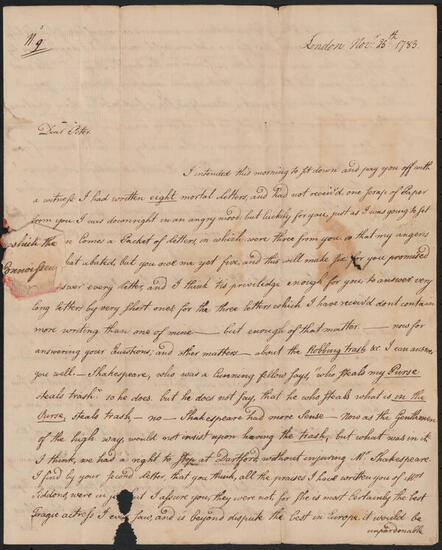 No 9
London Novr 25th 1783.
Dear Peter
I intended this morning to sit down and pay you off with
a witness I had written eight mortal letters, and had not receiv'd one scrap of Paper
from you I was downright in an angry mood but luckily for you, just as I was going to set
which the n Comes a Packet of letters, in which were three from you so that my anger is
but abated, but you owe me yet five, and this will make six for you promised
swer every letter, and I think 'tis priviledge enough for you to answer very
long letters by very short ones for the three letters which I have receiv'd dont contain
more writing than one of mine — but enough of that matter. — now for
answering your Questions, and other matters — about the Robbing trash &c I can answer
you well. — Shakespeare, who was a Cunning fellow says, "who steals my Purse
steals trash" so he does. but he does not say, that he who steals what is in the
Purse, steals trash — no — Shakespeare had more Sense — Now as the Gentlemen
of the high way, would not insist upon having the trash, but what was in it
I think, we had a right to stop at Dartford without injuring Mr Shakespeare.
I find by your second letter, that you think, all the praises I have written you of Mrs
Siddons were in but I assure you, they were not for she is most certainly the best
Tragic actress I ever saw, and is beyond dispute the best in Europe it would be
unpardonable